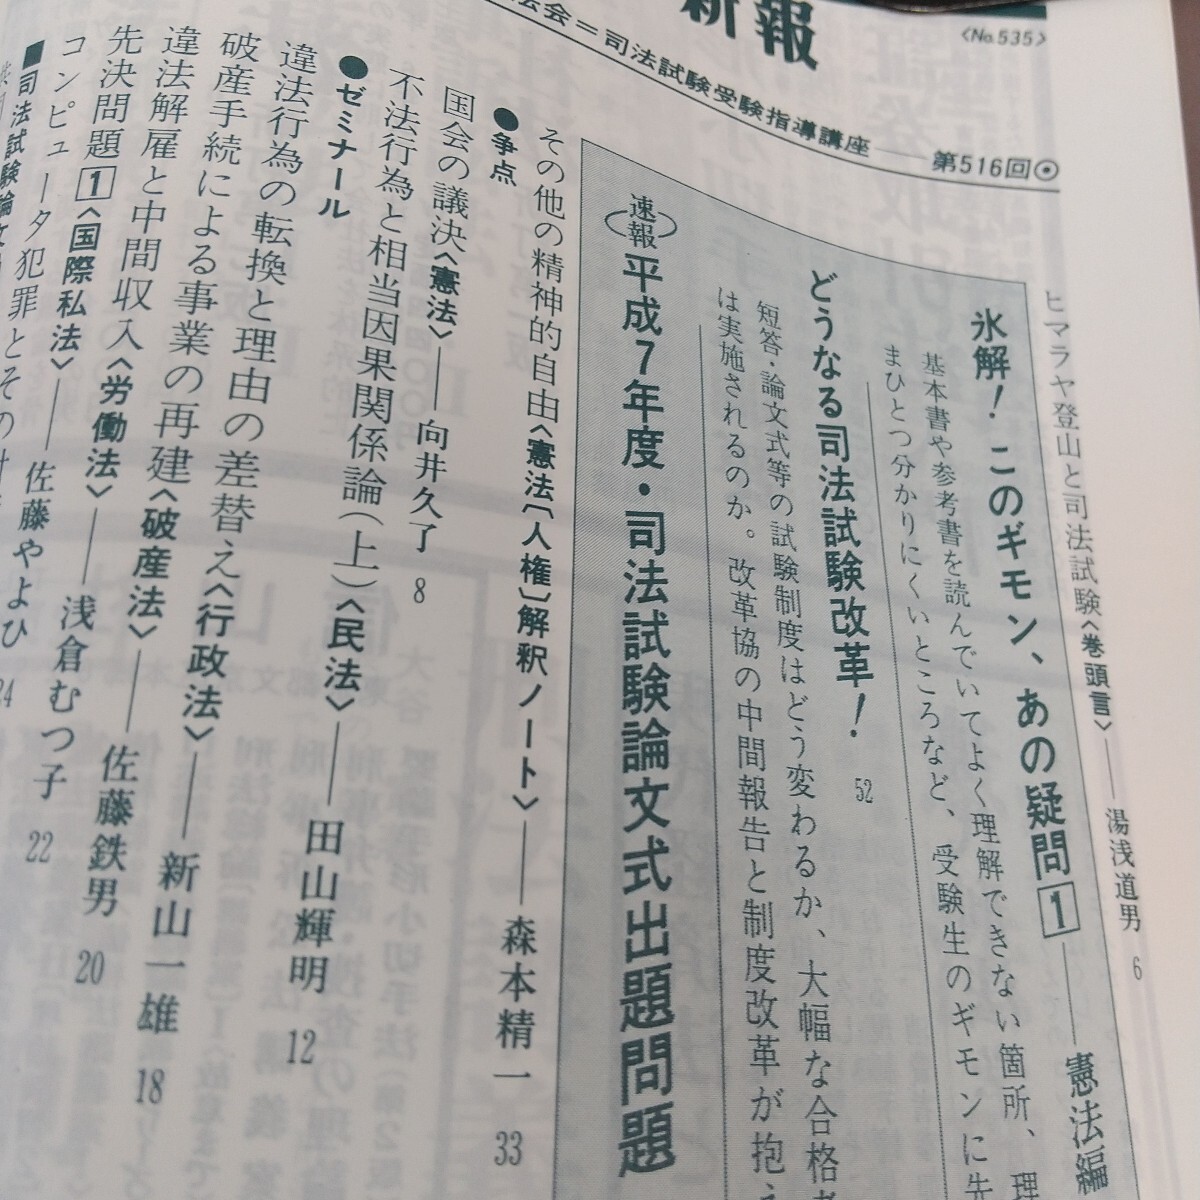 新報
〈No.535〉
法会＝司法試験受験指導講座——第516回
ヒマラヤ登山と司法試験〈巻頭言〉——湯浅道男 6
氷解！このギモン、あの疑問1——憲法編
基本書や参考書を読んでいてよく理解できない箇所、理
まひとつ分かりにくいところなど、受験生のギモンに先
どうなる司法試験改革！ 52
短答・論文式等の試験制度はどう変わるか、大幅な合格者
は実施されるのか。改革協の中間報告と制度改革が抱え
速報 平成7年度・司法試験論文式出題問題
その他の精神的自由〈憲法〔人権〕解釈ノート〉——森本精一 33
●争点
国会の議決〈憲法〉——向井久了 8
不法行為と相当因果関係論（上）〈民法〉——田山輝明 12
●ゼミナール
違法行為の転換と理由の差替え〈行政法〉——新山一雄 18
破産手続による事業の再建〈破産法〉——佐藤鉄男 20
違法解雇と中間収入〈労働法〉——浅倉むつ子 22
先決問題1〈国際私法〉——佐藤やよひ 24
コンピュータ犯罪とその
■司法試験論文